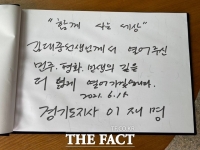 "함께 사는 세상"
김대중선생님께서 열어주신
민주. 평화. 민생의 길을
더 넓게 열어가겠습니다.
2021. 6. 15
경기도지사 이재명
THE FACT